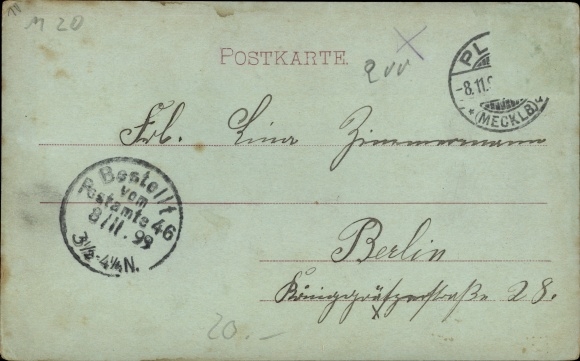 M 20
POSTKARTE
PL
-8.11.9
*(MECKLB)*
Frl. Lina Zimmermann
Bestellt
vom
Postamte 46
8/11.99
3½-4¼N.
Berlin
Königgrätzerstraße 28.
20.-